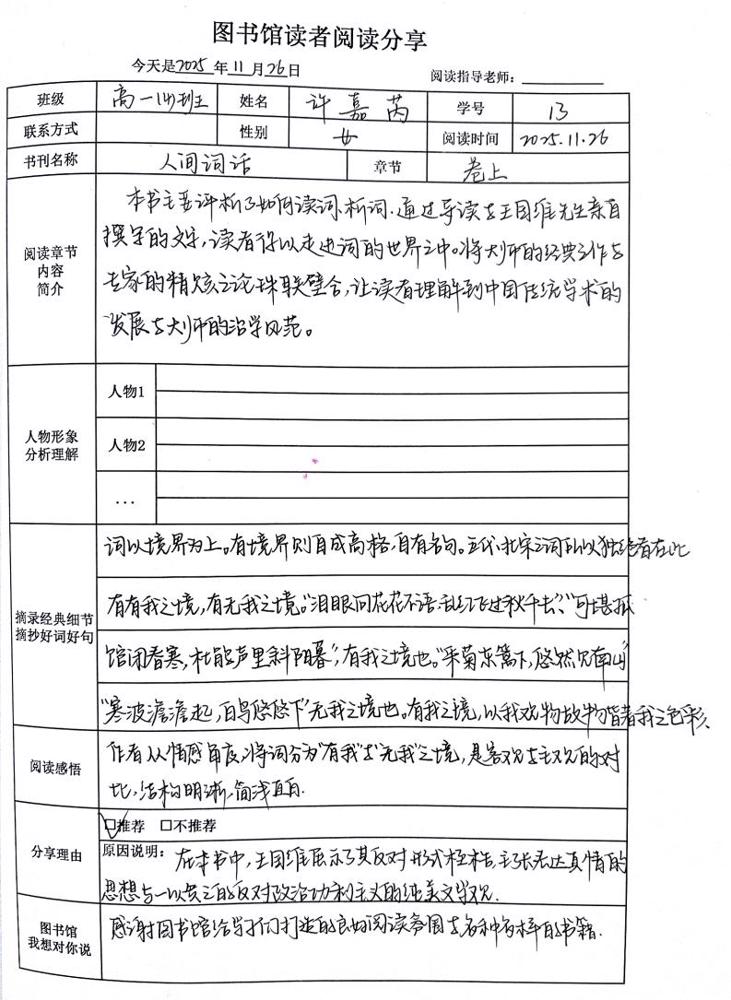 图书馆读者阅读分享
今天是2025年11月26日 阅读指导老师：
班级 高一(4)班 姓名 许嘉芮 学号 13
联系方式 性别 女 阅读时间 2025.11.26
书刊名称 人间词话 章节 卷上
阅读章节
内容
简介
本书主要评析了如何读词、析词。通过导读与王国维先生亲自
撰写的文字，读者得以走进词的世界之中。将大师的经典之作与
专家的精炼之论珠联璧合，让读者理解到中国传统学术的
发展与大师的治学风范。
人物形象
分析理解
人物1
人物2
…
摘录经典细节
摘抄好词好句
词以境界为上。有境界则自成高格，自有名句。五代、北宋之词所以独绝者在此
有有我之境，有无我之境。“泪眼问花花不语，乱红飞过秋千去”、“可堪孤
馆闭春寒，杜鹃声里斜阳暮”，有我之境也。“采菊东篱下，悠然见南山”
“寒波澹澹起，白鸟悠悠下”无我之境也。有我之境，以我观物故物皆著我之色彩、
阅读感悟
作者从情感角度，将词分为“有我”与“无我”之境，是客观与主观的对
比，结构明晰，简浅直白.
分享理由
☑推荐 □不推荐
原因说明：在本书中，王国维展示了其反对形式桎梏，主张表达真情的
思想与一以贯之的反对政治功利主义的纯美文学观.
图书馆
我想对你说
感谢图书馆给学子们打造的良好阅读氛围与各种各样的书籍.